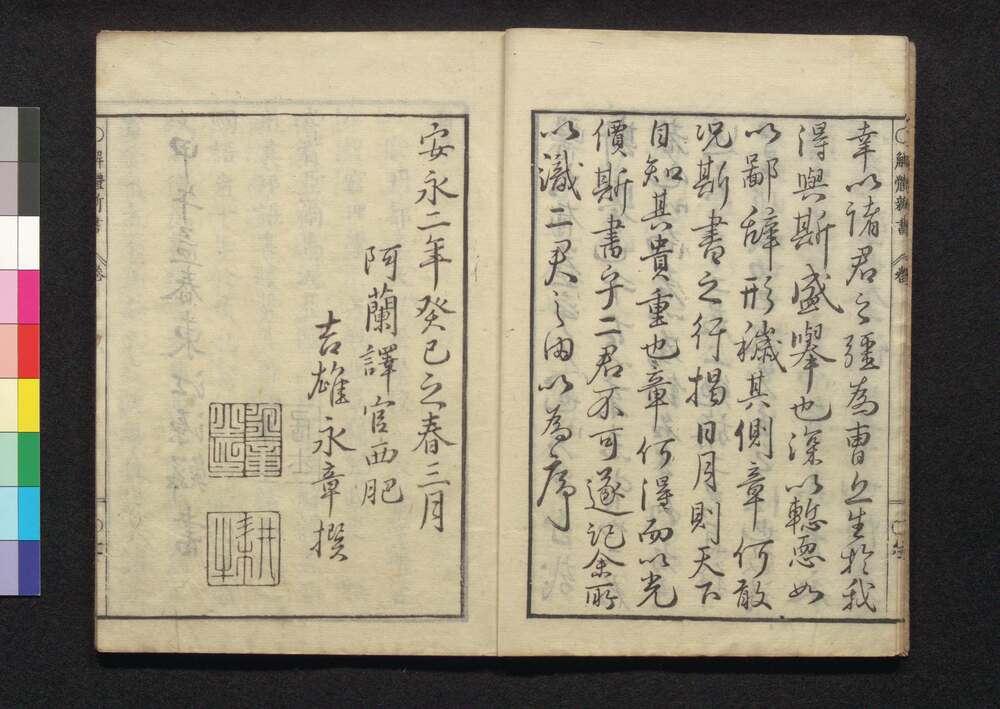 幸以諸君之疆為曹丘生於我
得與斯盛擧也深以慙恧如
以鄙辞形穢其側章何敢
况斯書之行揭日月則天下
自知其貴重也章何得而以光
價斯書乎二君不可遂記余所
以識二君之由以為序
安永二年癸巳之春三月
阿蘭譯官西肥
吉雄永章撰
解體新書
解體新書